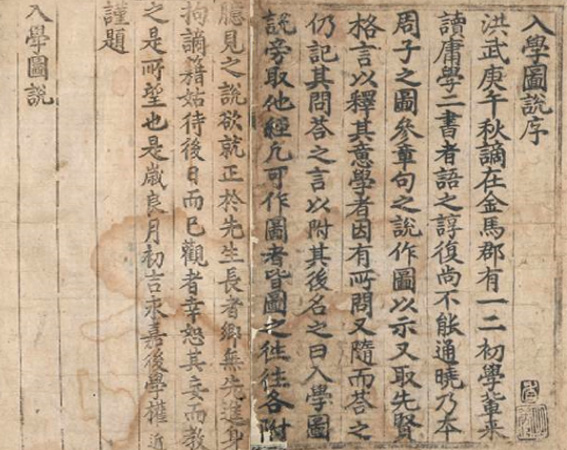 入學圖說序
洪武庚午秋謫在金馬郡有一二初學輩來
讀庸學二書者語之諄復尚不能通曉乃本
周子之圖參章句之說作圖以示又取先賢
格言以釋其意學者因有所問又隨而答之
仍記其問答之言以附其後名之曰入學圖
說旁取他經凡可作圖者皆圖之往往各附
臆見之說欲就正於先生長者鄉無先進身
拘謫籍姑待後日而已觀者幸恕其妄而教
之是所望也是歲良月初吉永嘉後學權近
謹題
入學圖說